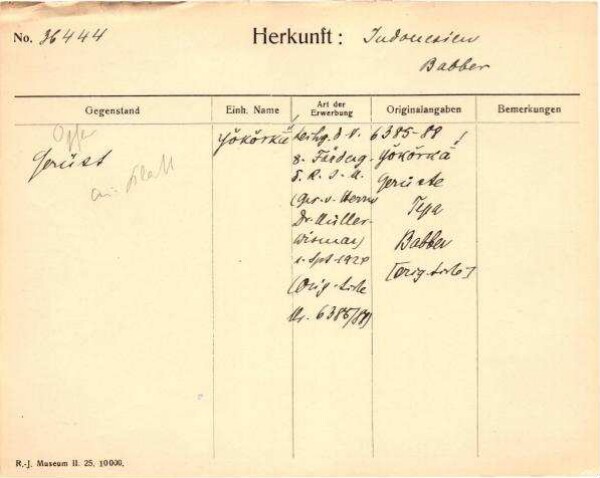 No. 36444 Herkunft: Indonesien
Babber
Gegenstand Einh. Name Art der Erwerbung Originalangaben Bemerkungen
Opfer
Gerüst
Yökörkä
d. V.
z. Förderg.
d. R. J. M.
(Ges. v. Herrn
Dr. Müller-
Wismar)
1. Sept. 1928
(Orig.-Liste
Nr. 6385/88)
6385-88
Yökörkä
Gerüste
Tepa
Babber
[Orig.-Liste]
R.-J. Museum II. 25. 10000.